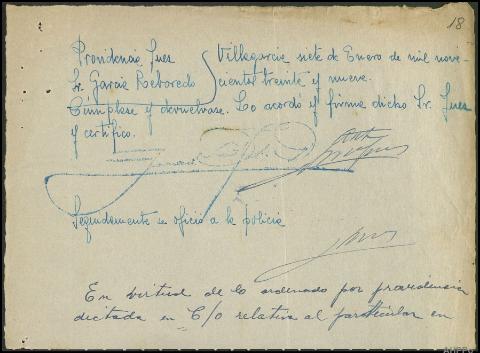 18
Providencia Juez Villagarcia siete de Enero de mil nove-
Sr. Garcia Reboredo cientos treinta y nueve.
Cúmplase y devuelvase. Lo acordó y firma dicho Sr. Juez
y certifico.
Seguidamente se ofició a la policia
En virtud de lo ordenado por providencia
dictada en C/o relativa al particular en